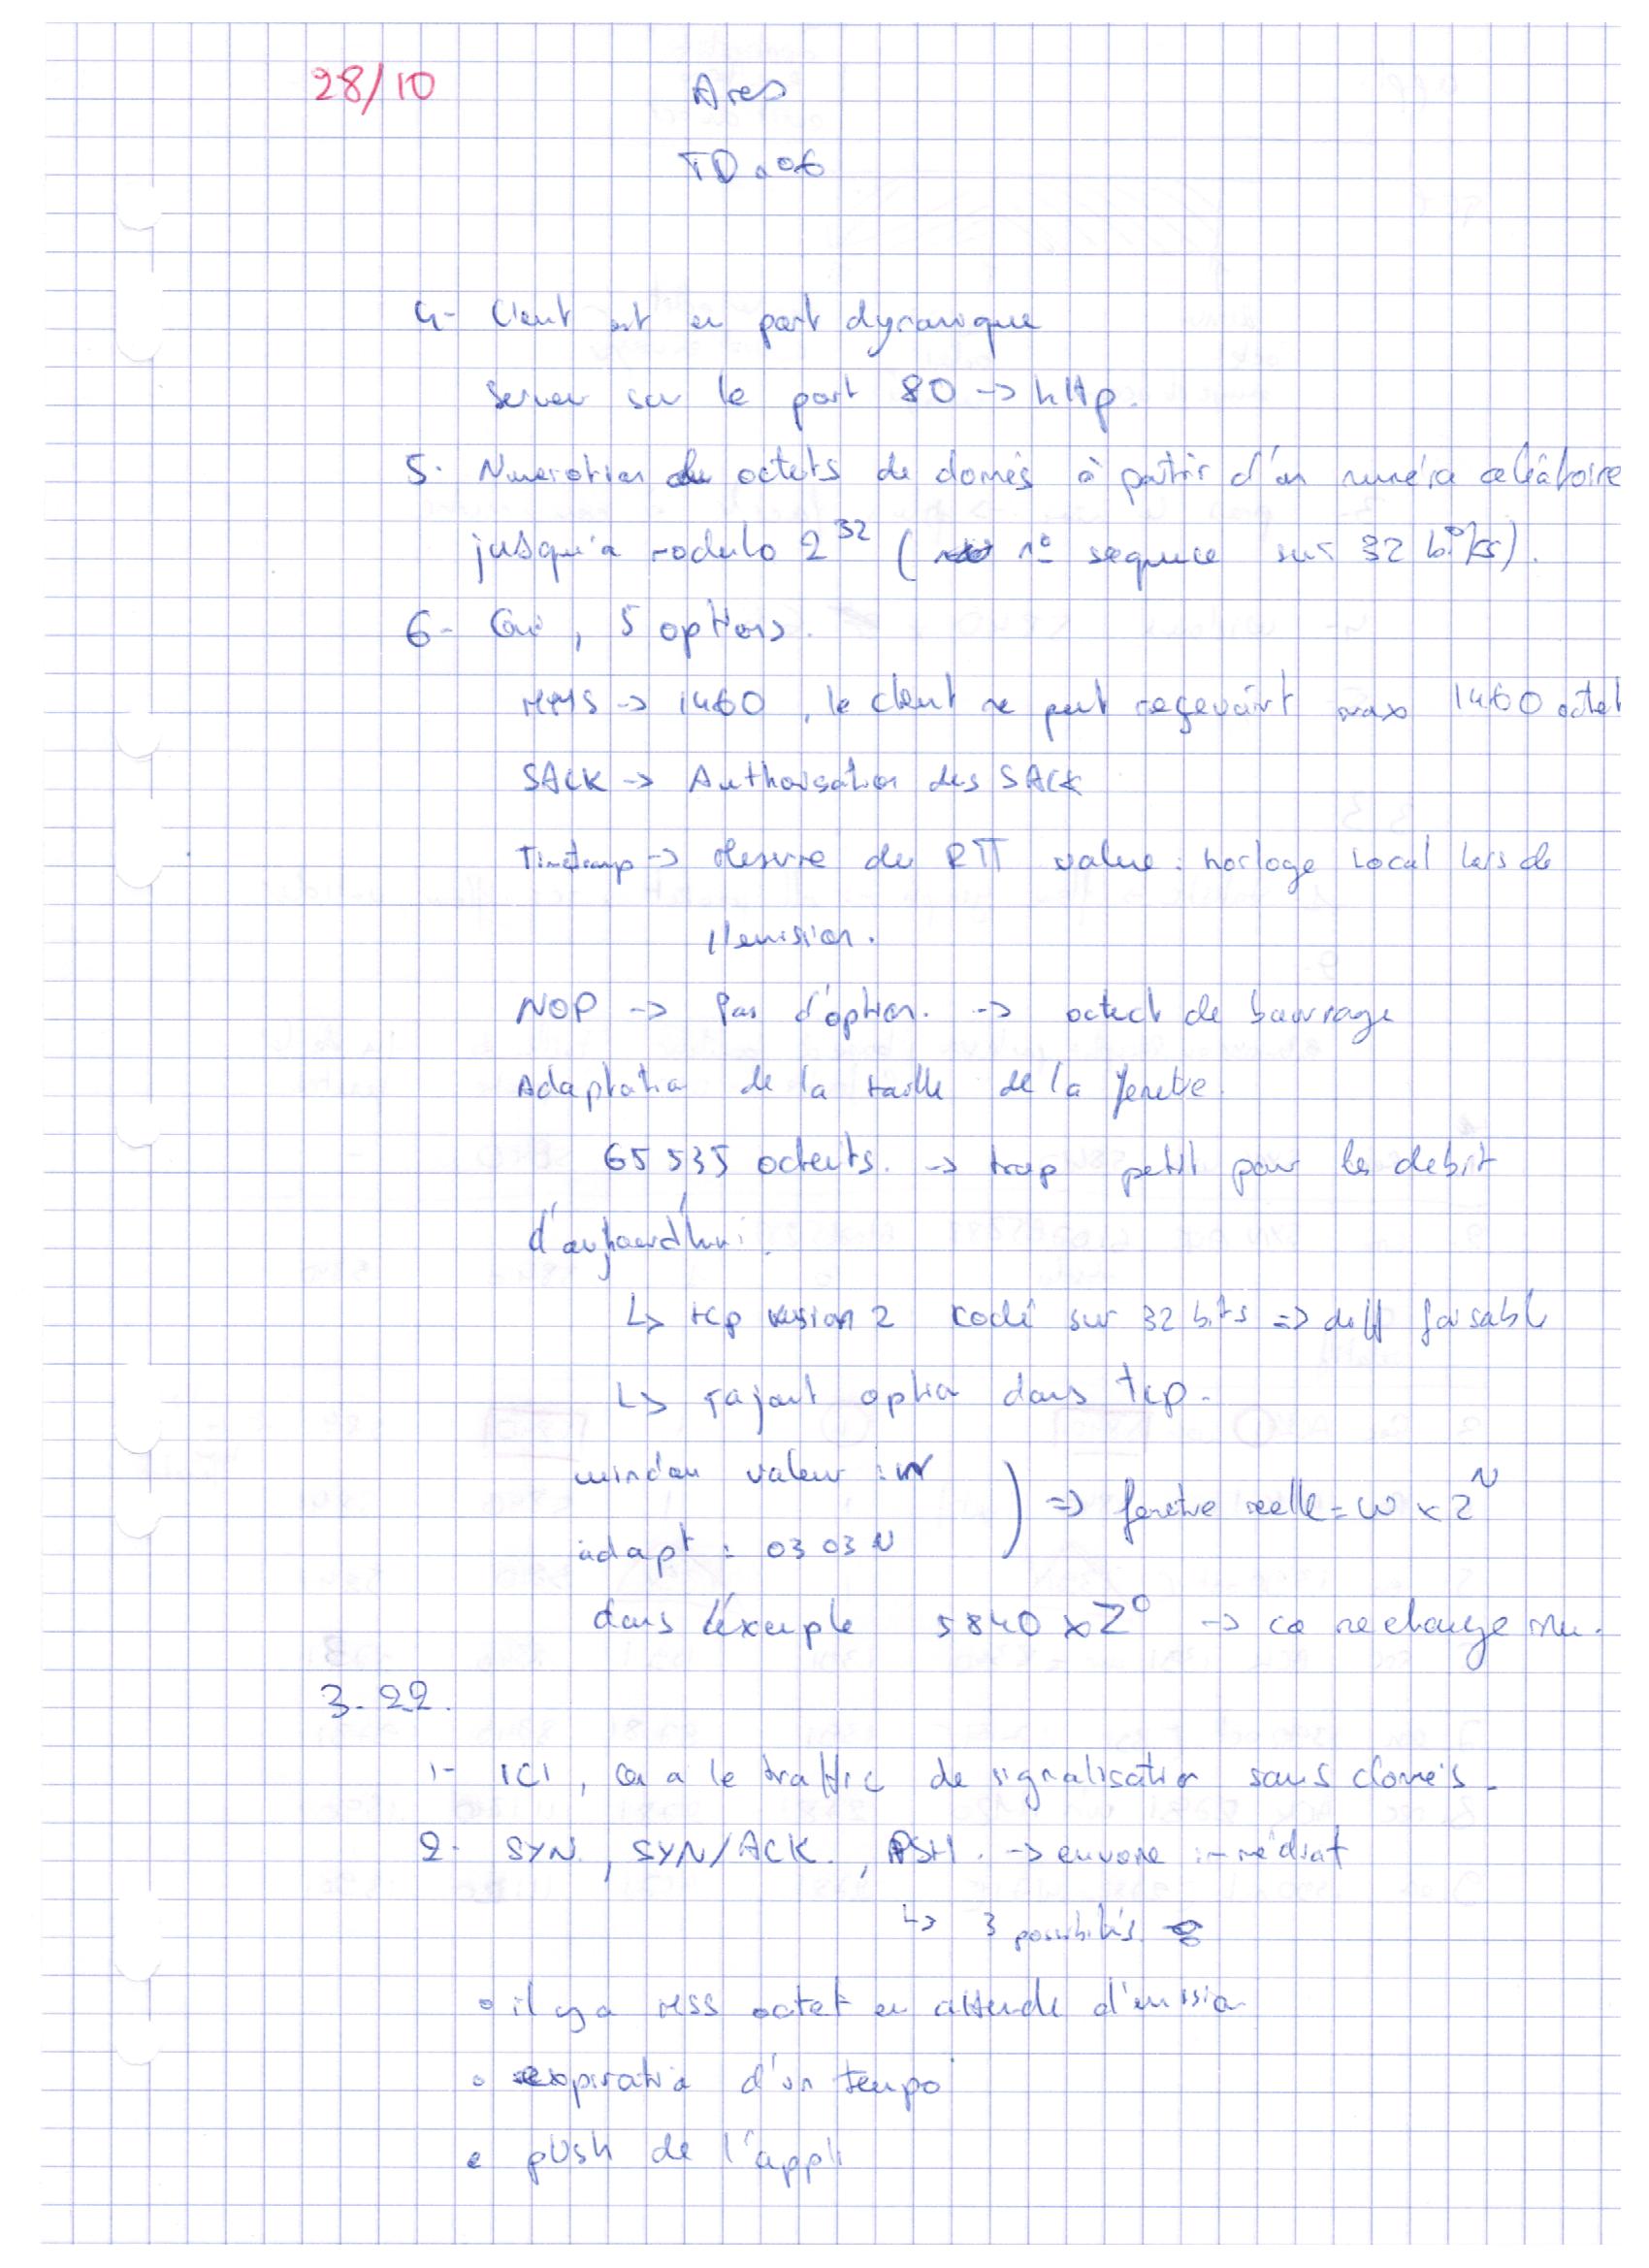 28/10
Ares
TD n°06
4- Client est en port dynamique
Server sur le port 80 -> http.
5- Numerotion de octets de donnés à partir d'un numéro aléatoire
jusqu'a modulo 2^32 ( n° sequence sur 32 bits).
6- Oui, 5 options.
MMS -> 1460, le client ne peut reçevoirt max 1460 octet
SACK -> Authorisation des SACK
Timestamp -> Mesure du RTT value : horloge Local lors de
l'emission.
NOP -> Pas d'option. -> octect de bourrage
Adaptation de la taille de la fenetre.
65 535 octects. -> trop petit pour les debit
d'aujourd'hui.
↳ tcp version 2 codé sur 32 bits => diff faisable
↳ rajout option dans tcp.
window valeur : w
adapt : 03 03 N
) => fenetre reelle = w x 2^N
dans l'exemple 5840 x 2^0 -> ca ne change rien.
3-22.
1- ICI, on a le traffic de signalisation sans donnés.
2- SYN, SYN/ACK, PSH. -> envoie immédiat
↳ 3 possibilités
• il y a MSS octet en attende d'emission
• expiration d'un tempo
• push de l'appli